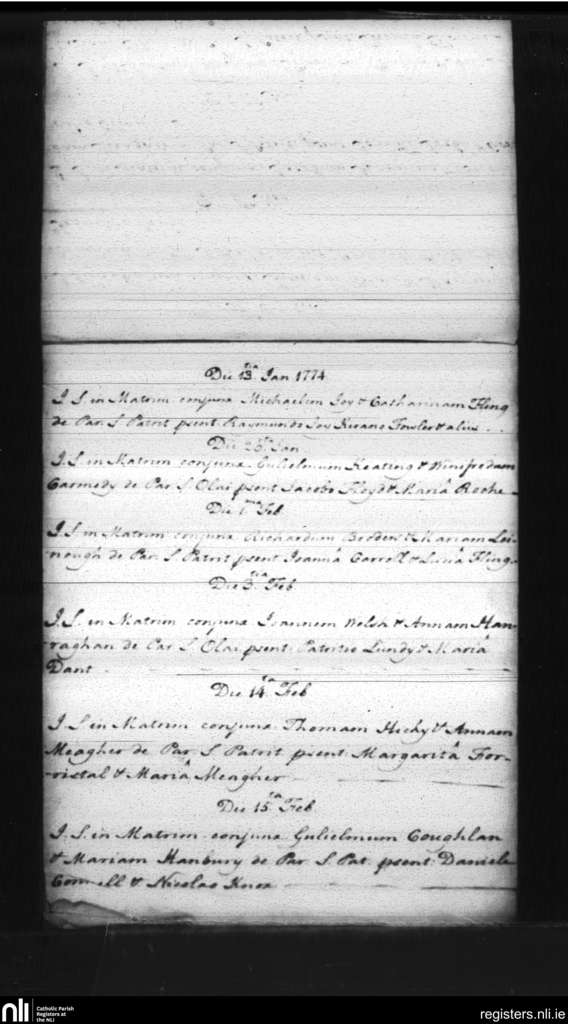 Die 13ta Jan 1774
I. S. in Matrim conjunx Michaelem Joy & Catharinam Fling
de Par S Patrit psent Rasmundo Joy Kirano Fowler & aliis
Die 20ta Jan
I. S. in Matrim conjunx Gulielmum Keating & Winefredam
Carmody de Par S Olai psent Jacobo Floyd & Mariâ Roche
Die 1ma Feb
I. S. in Matrim conjunx Richardum Broders & Mariam Lei-
-nough de Par S. Patrit psent Joannâ Carroll & Luciâ Fling
Die 3tia Feb
I. S. in Matrim conjunx Joannem Welsh & Annam Han-
raghan de Par S. Olai psent Patritio Lundy & Mariâ
Dant
Die 14ta Feb
I S in Matrim conjunx Thomam Hicky & Annam
Meagher de Par S Patrit psent Margaritâ For-
-ristal & Mariâ Meagher
Die 15ta Feb
I. S. in Matrim conjunx Gulielmum Coughlan
& Mariam Hanbury de Par S Pat. psent Daniele
Connell & Nicolao Knox
nli
Catholic Parish
Registers at
the NLI
registers.nli.ie